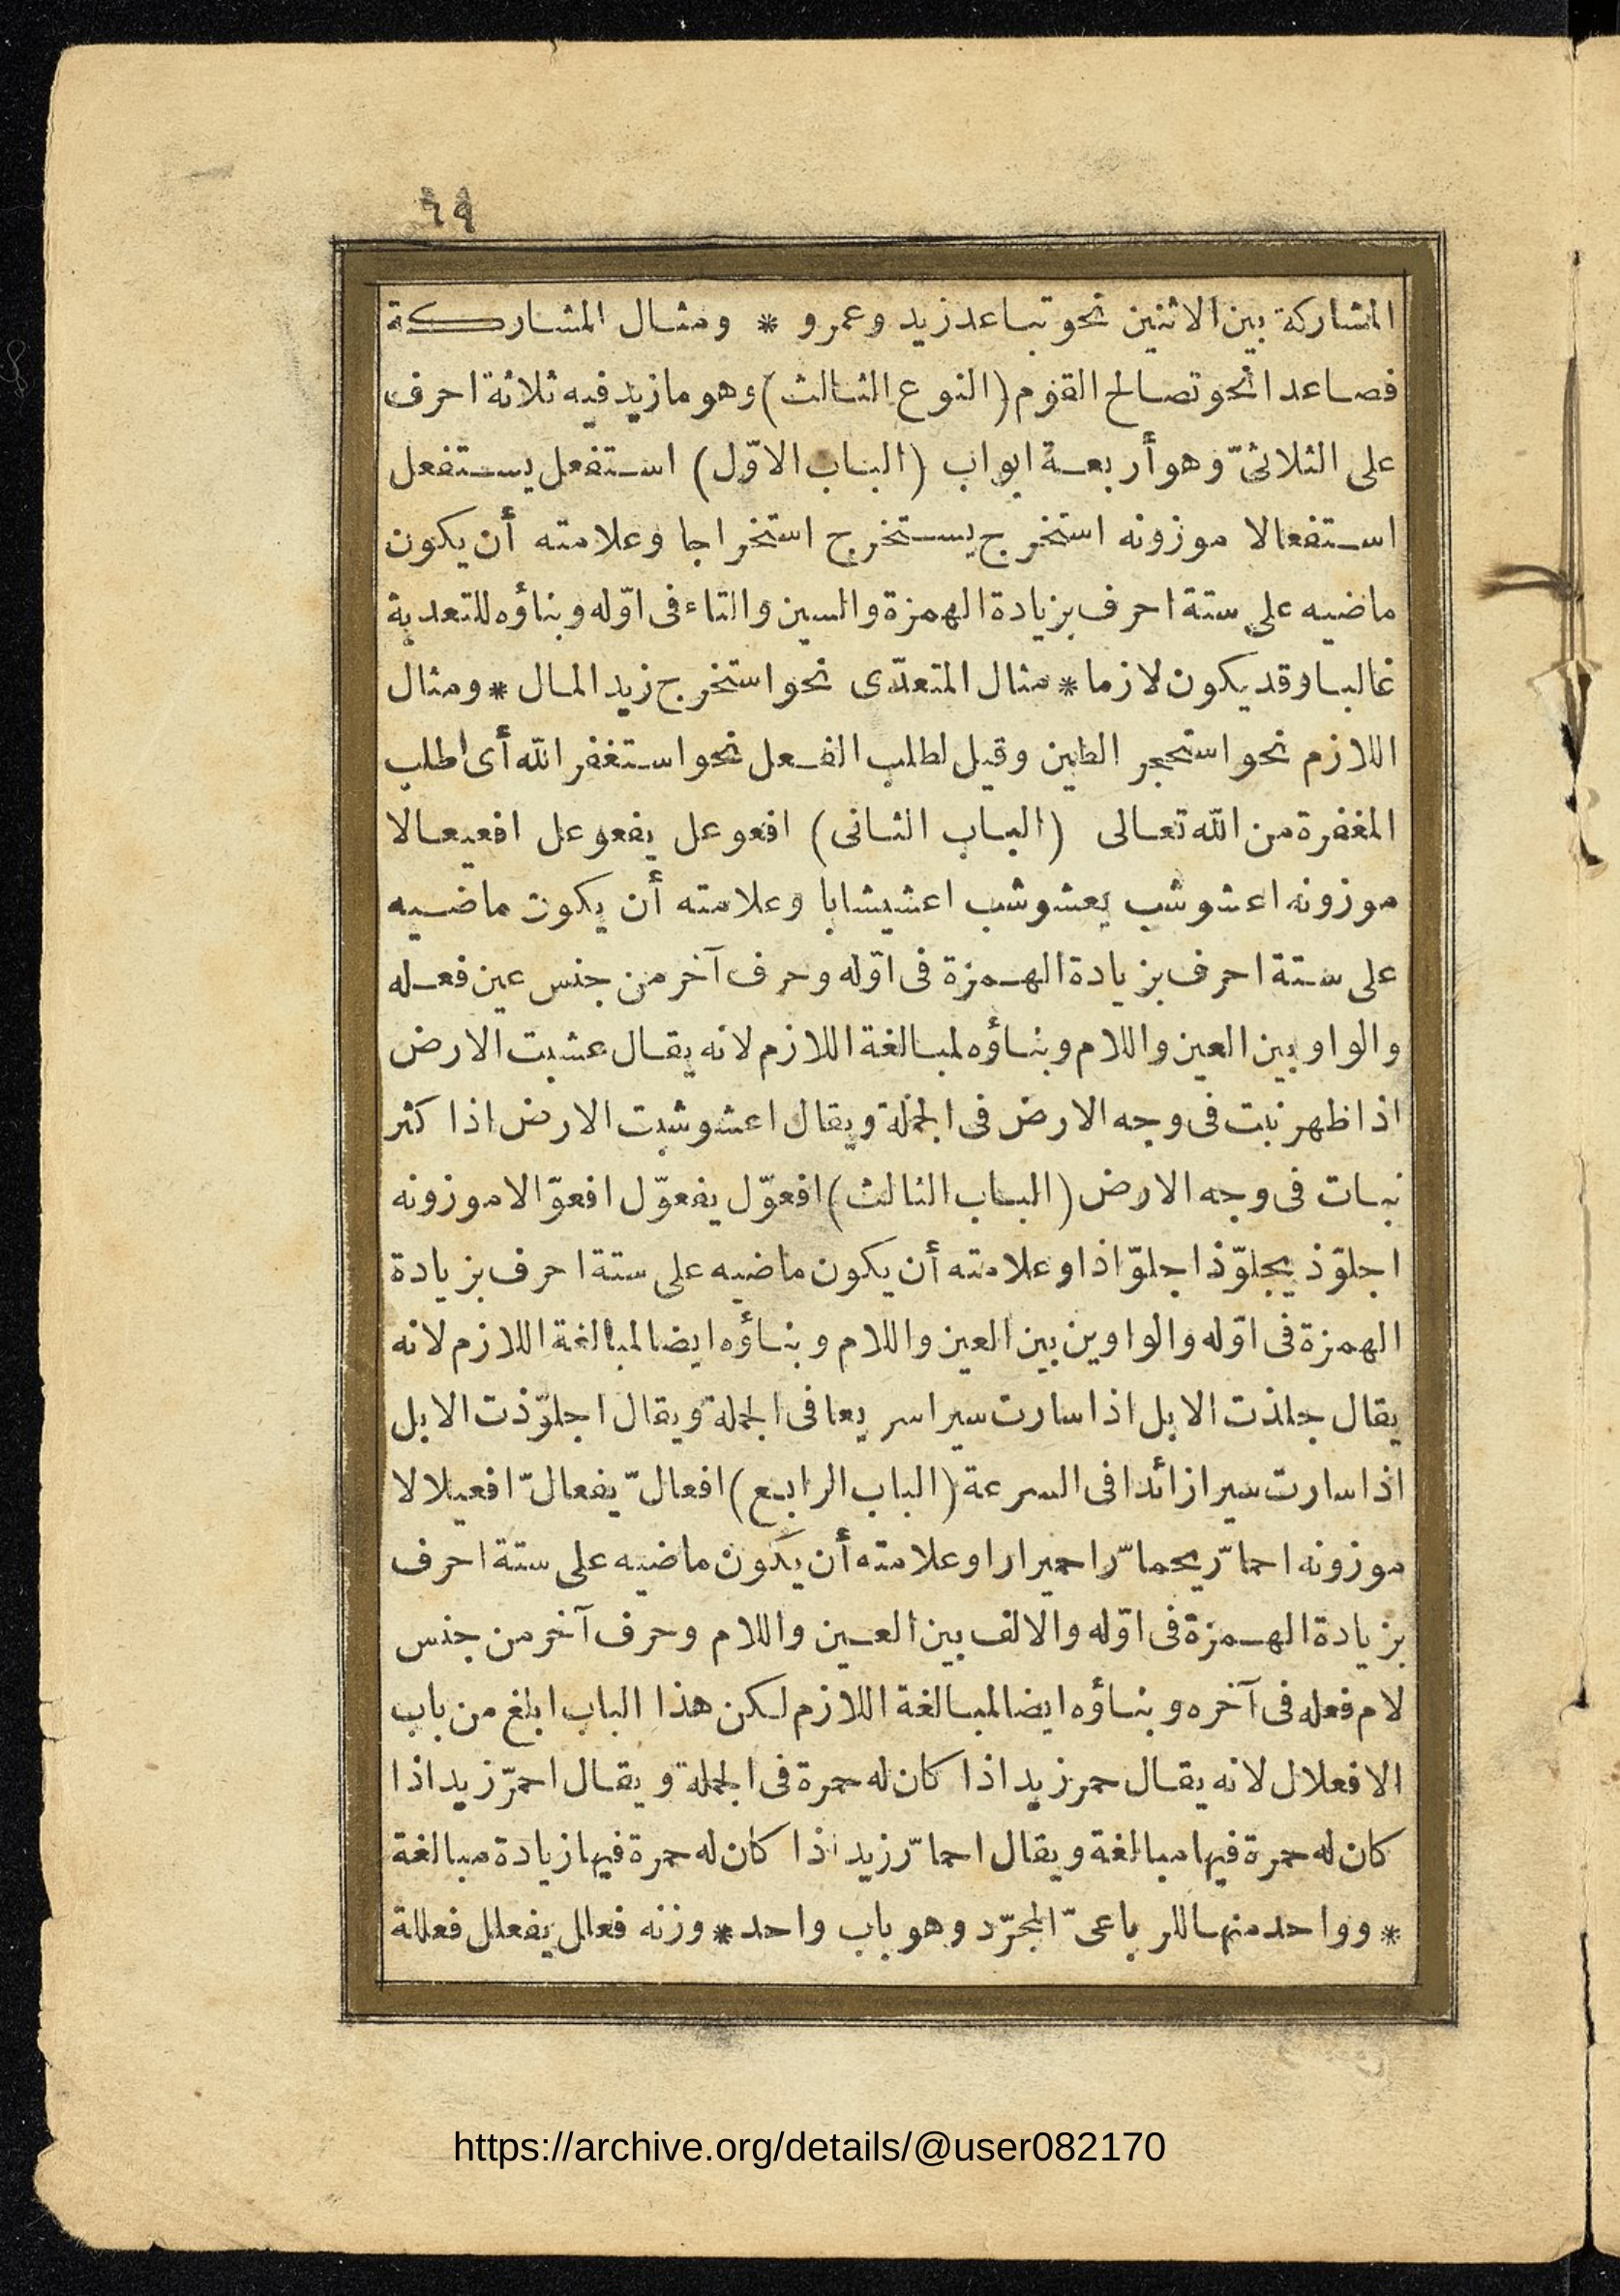 ٦٩
المشاركة بين الاثنين نحو تباعد زيد وعمرو * ومثال المشاركة
فصاعدا نحو تصالح القوم (النوع الثالث) وهو ما زيد فيه ثلاثة احرف
على الثلاثىّ وهو أربعة ابواب (الباب الاوّل) استفعل يستفعل
استفعالا موزونه استخرج يستخرج استخراجا وعلامته أن يكون
ماضيه على ستة احرف بزيادة الهمزة والسين والتاء فى اوّله وبناؤه للتعدية
غالبا وقد يكون لازما * مثال المتعدّى نحو استخرج زيد المال * ومثال
اللازم نحو استحجر الطين وقيل لطلب الفعل نحو استغفر الله أى اطلب
المغفرة من الله تعالى (الباب الثانى) افعوعل يفعوعل افعيعالا
موزونه اعشوشب يعشوشب اعشيشابا وعلامته أن يكون ماضيه
على ستة احرف بزيادة الهمزة فى اوّله وحرف آخر من جنس عين فعله
والواو بين العين واللام وبناؤه لمبالغة اللازم لانه يقال عشبت الارض
اذا ظهر نبت فى وجه الارض فى الجملة ويقال اعشوشبت الارض اذا كثر
نبات فى وجه الارض (الباب الثالث) افعوّل يفعوّل افعوّالا موزونه
اجلوّذ يجلوّذ اجلوّاذا وعلامته أن يكون ماضيه على ستة احرف بزيادة
الهمزة فى اوّله والواوين بين العين واللام وبناؤه ايضا لمبالغة اللازم لانه
يقال جلذت الابل اذا سارت سيرا سريعا فى الجملة ويقال اجلوّذت الابل
اذا سارت سيرا زائدا فى السرعة (الباب الرابع) افعالّ يفعالّ افعيلالا
موزونه احمارّ يحمارّ احميرارا وعلامته أن يكون ماضيه على ستة احرف
بزيادة الهمزة فى اوّله والالف بين العين واللام وحرف آخر من جنس
لام فعله فى آخره وبناؤه ايضا لمبالغة اللازم لكن هذا الباب ابلغ من باب
الافعلال لانه يقال حمر زيد اذا كان له حمرة فى الجملة ويقال احمرّ زيد اذا
كان له حمرة فيها مبالغة ويقال احمارّ زيد اذا كان له حمرة فيها زيادة مبالغة
* وواحد منها للرباعىّ المجرّد وهو باب واحد * وزنه فعلل يفعلل فعللة
https://archive.org/details/@user082170